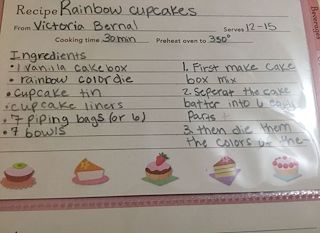 Recipe Rainbow cupcakes
From Victoria Bernal Serves 12-15
Cooking time 30min Preheat oven to 350°
Ingredients
• 1 vanilla cakebox
• rainbow color die
• cupcake tin
• cupcake liners
• 7 piping bags (or 6)
• 7 bowls
1. First make cake
box mix
2. Seperat the cake
batter into 6
Parts
3. then die them
the colors of the
Beverages